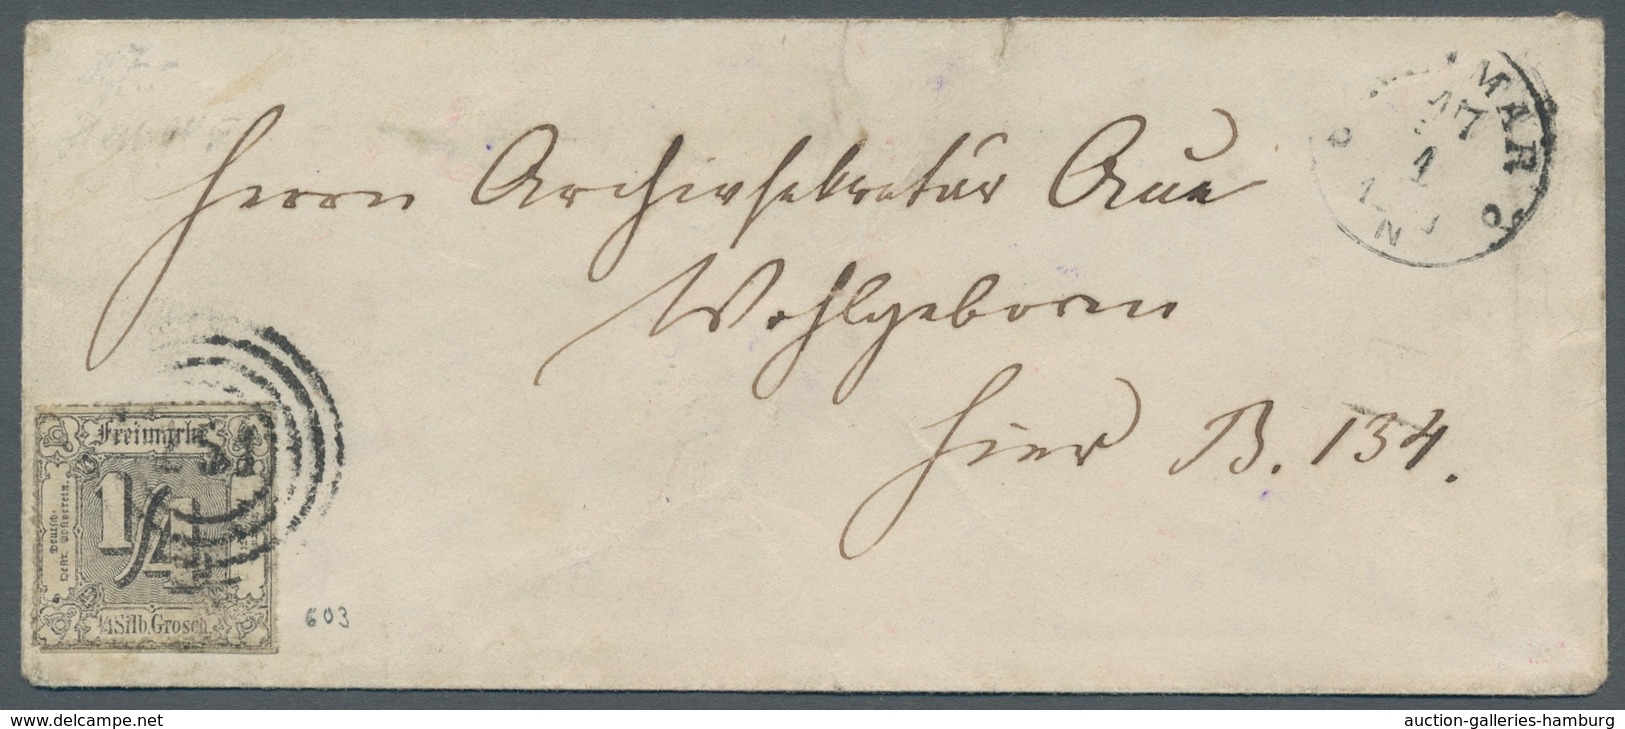 Herrn Archivsekretär Aue
Wohlgeboren
hier B. 134.
MAR
17
1
Freimarke
251
1/4
Deutsch-
Oestr. Postverein.
1/4 Silb. Grosch.
603
www.delcampe.net
auction-galleries-hamburg